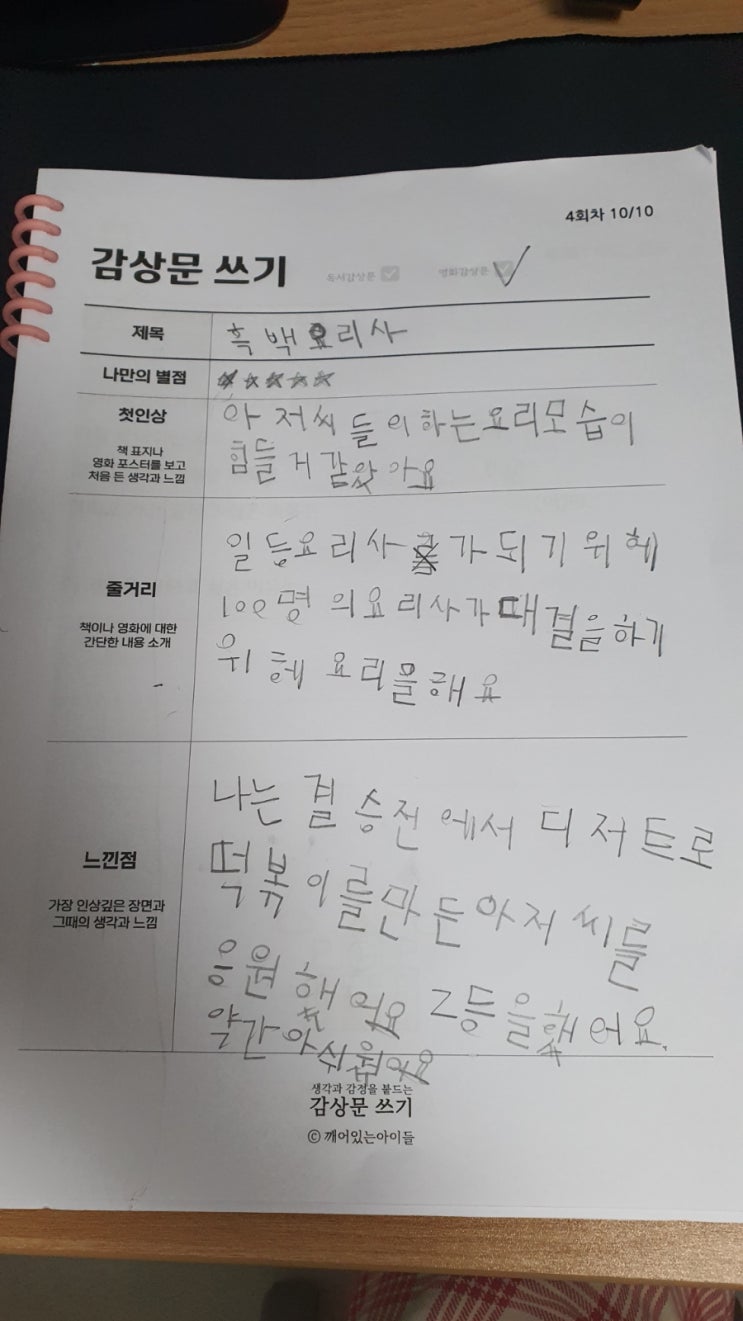 4회차 10/10
감상문 쓰기
독서감상문
영화감상문
제목
흑백요리사
나만의 별점
★★★★★
첫인상
책 표지나
영화 포스터를 보고
처음 든 생각과 느낌
아저씨들의하는요리모습이
힘들거같았아요
줄거리
책이나 영화에 대한
간단한 내용 소개
일등요리사가되기위헤
100명의요리사가때결을하기
위헤요리믈해요
느낀점
가장 인상깊은 장면과
그때의 생각과 느낌
나는 결승전에서 디저트로
떡볶이를만든아저씨를
응원했어요 2등을했어요.
약간아쉬웠어요
생각과 감정을 붙드는
감상문 쓰기
ⓒ 깨어있는아이들